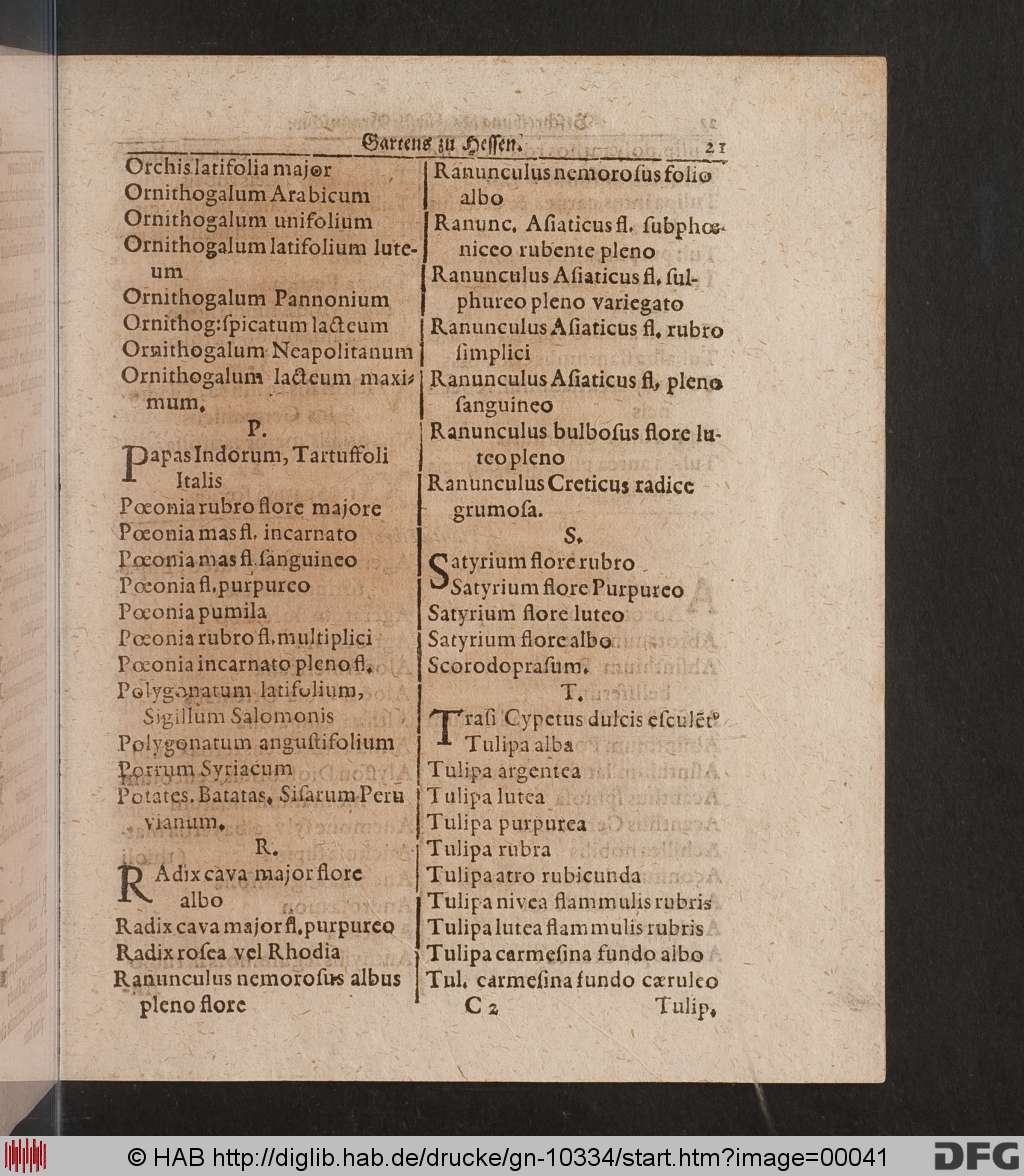 Gartens zu Hessen.
21
Orchis latifolia major
Ornithogalum Arabicum
Ornithogalum unifolium
Ornithogalum latifolium lute-
um
Ornithogalum Pannonium
Ornithog: ſpicatum lacteum
Ornithogalum Neapolitanum
Ornithogalum lacteum maxi-
mum.
P.
Papas Indorum, Tartuffoli
Italis
Pœonia rubro flore majore
Pœonia mas fl. incarnato
Pœonia mas fl. ſanguineo
Pœonia fl. purpureo
Pœonia pumila
Pœonia rubro fl. multiplici
Pœonia incarnato pleno fl.
Polygonatum latifolium,
Sigillum Salomonis
Polygonatum anguſtifolium
Porrum Syriacum
Potates. Batatas. Siſarum Peru
vianum.
R.
RAdix cava major flore
albo
Radix cava major fl. purpureo
Radix roſea vel Rhodia
Ranunculus nemoroſus albus
pleno flore
Ranunculus nemoroſus folio
albo
Ranunc. Aſiaticus fl. ſubphœ-
niceo rubente pleno
Ranunculus Aſiaticus fl. ſul-
phureo pleno variegato
Ranunculus Aſiaticus fl. rubro
ſimplici
Ranunculus Aſiaticus fl, pleno
ſanguineo
Ranunculus bulboſus flore lu-
teo pleno
Ranunculus Creticus radice
grumoſa.
S.
Satyrium flore rubro
Satyrium flore Purpureo
Satyrium flore luteo
Satyrium flore albo
Scorodopraſum.
T.
Traſi Cypetus dulcis eſculẽtꝰ
Tulipa alba
Tulipa argentea
Tulipa lutea
Tulipa purpurea
Tulipa rubra
Tulipa atro rubicunda
Tulipa nivea flammulis rubris
Tulipa lutea flammulis rubris
Tulipa carmeſina fundo albo
Tul. carmeſina fundo cæruleo
C 2
Tulip.
© HAB http://diglib.hab.de/drucke/gn-10334/start.htm?image=00041
DFG